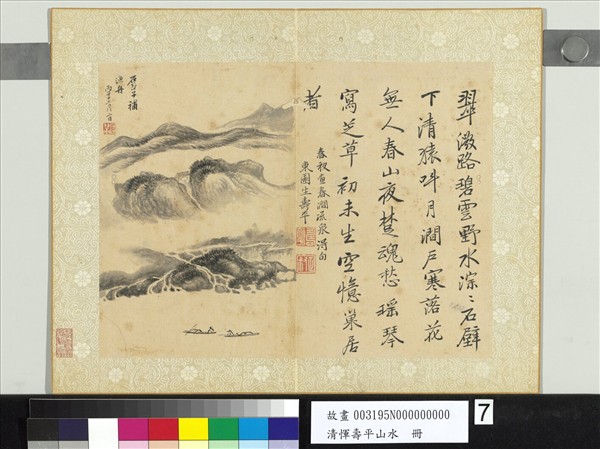 翠微路碧雲野水淙〻石壁
下清猿呌月澗戶寒落花
無人春山夜楚魂愁瑶琴
寫芝草初未生空憶巢居
者
春澗流泉得句
東園生壽平
子補
漁舟
故畫 003195N000000000
清惲壽平山水　冊
7